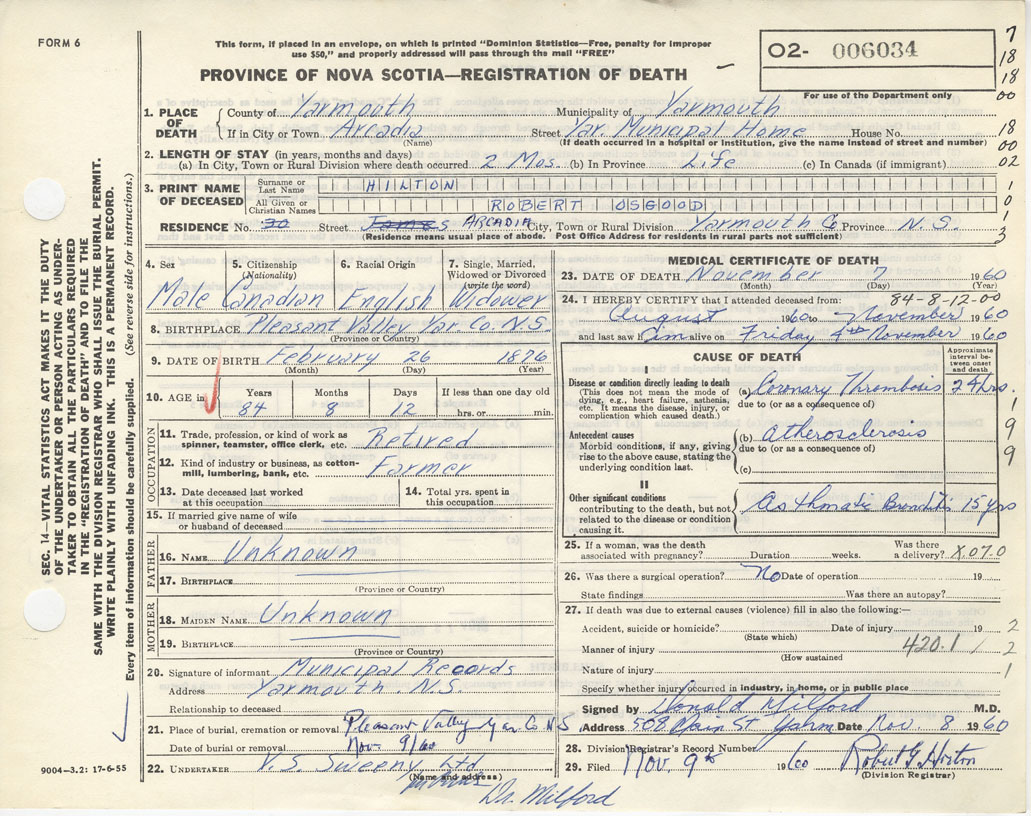 FORM 6
This form, if placed in an envelope, on which is printed "Dominion Statistics—Free, penalty for improper
use $50," and properly addressed will pass through the mail "FREE"
PROVINCE OF NOVA SCOTIA—REGISTRATION OF DEATH
02- 006034
For use of the Department only
7
18
18
00
18
00
02
1
0
1
3
1. PLACE OF DEATH
County of Yarmouth Municipality of Yarmouth
If in City or Town Arcadia Street Yar. Municipal Home House No.
(Name) (If death occurred in a hospital or institution, give the name instead of street and number)
2. LENGTH OF STAY (in years, months and days)
(a) In City, Town or Rural Division where death occurred 2 Mos. (b) In Province Life (c) In Canada (if immigrant)
3. PRINT NAME OF DECEASED
Surname or Last Name HILTON
All Given or Christian Names ROBERT OSGOOD
RESIDENCE No. 30 Street ARCADIA City, Town or Rural Division Yarmouth Co Province N.S.
(Residence means usual place of abode. Post Office Address for residents in rural parts not sufficient)
4. Sex 5. Citizenship (Nationality) 6. Racial Origin 7. Single, Married, Widowed or Divorced (write the word)
Male Canadian English Widower
8. BIRTHPLACE Pleasant Valley Yar. Co. N.S.
(Province or Country)
9. DATE OF BIRTH February 26 1876
(Month) (Day) (Year)
10. AGE in Years Months Days If less than one day old
84 8 12 hrs. or min.
OCCUPATION
11. Trade, profession, or kind of work as spinner, teamster, office clerk, etc. Retired
12. Kind of industry or business, as cotton-mill, lumbering, bank, etc. Farmer
13. Date deceased last worked at this occupation 14. Total yrs. spent in this occupation
15. If married give name of wife or husband of deceased
FATHER
16. NAME Unknown
17. BIRTHPLACE
(Province or Country)
MOTHER
18. MAIDEN NAME Unknown
19. BIRTHPLACE
(Province or Country)
20. Signature of informant Municipal Records
Address Yarmouth N.S.
Relationship to deceased
21. Place of burial, cremation or removal Pleasant Valley Yar Co N S
Date of burial or removal Nov 9/60
22. UNDERTAKER V. S. Sweeny Ltd
(Name and address)
Dr. Milford
MEDICAL CERTIFICATE OF DEATH
23. DATE OF DEATH November 7 1960
(Month) (Day) (Year)
84-8-12-00
24. I HEREBY CERTIFY that I attended deceased from:
August 1960 to November 1960
and last saw him alive on Friday 4th November 1960
CAUSE OF DEATH
Approximate interval between onset and death
I
Disease or condition directly leading to death (This does not mean the mode of dying, e.g., heart failure, asthenia; etc. It means the disease, injury, or complication which caused death.)
(a) Coronary Thrombosis 24 hrs.
due to (or as a consequence of)
Antecedent causes
Morbid conditions, if any, giving rise to the above cause, stating the underlying condition last.
(b) Atherosclerosis
due to (or as a consequence of)
(c)
II
Other significant conditions contributing to the death, but not related to the disease or condition causing it.
Asthmatic Bronchitis 15 yrs
1
9
9
25. If a woman, was the death associated with pregnancy? Duration weeks. Was there a delivery? X070
26. Was there a surgical operation? No Date of operation 19
State findings Was there an autopsy?
27. If death was due to external causes (violence) fill in also the following:—
Accident, suicide or homicide? Date of injury 19
(State which)
Manner of injury 420.1
(How sustained)
Nature of injury
2
2
1
Specify whether injury occurred in industry, in home, or in public place
Signed by Donald Milford M.D.
Address 508 Main St Yarm Date Nov. 8 1960
28. Division Registrar's Record Number
29. Filed Nov. 9th 1960 Robert G Horton
(Division Registrar)
SEC. 14—VITAL STATISTICS ACT MAKES IT THE DUTY
OF THE UNDERTAKER OR PERSON ACTING AS UNDER-
TAKER TO OBTAIN ALL THE PARTICULARS REQUIRED
IN THE "REGISTRATION OF DEATH" AND TO FILE THE
SAME WITH THE DIVISION REGISTRAR WHO SHALL ISSUE THE BURIAL PERMIT.
WRITE PLAINLY WITH UNFADING INK. THIS IS A PERMANENT RECORD.
Every item of information should be carefully supplied. (See reverse side for instructions.)
9004-3.2: 17-6-55